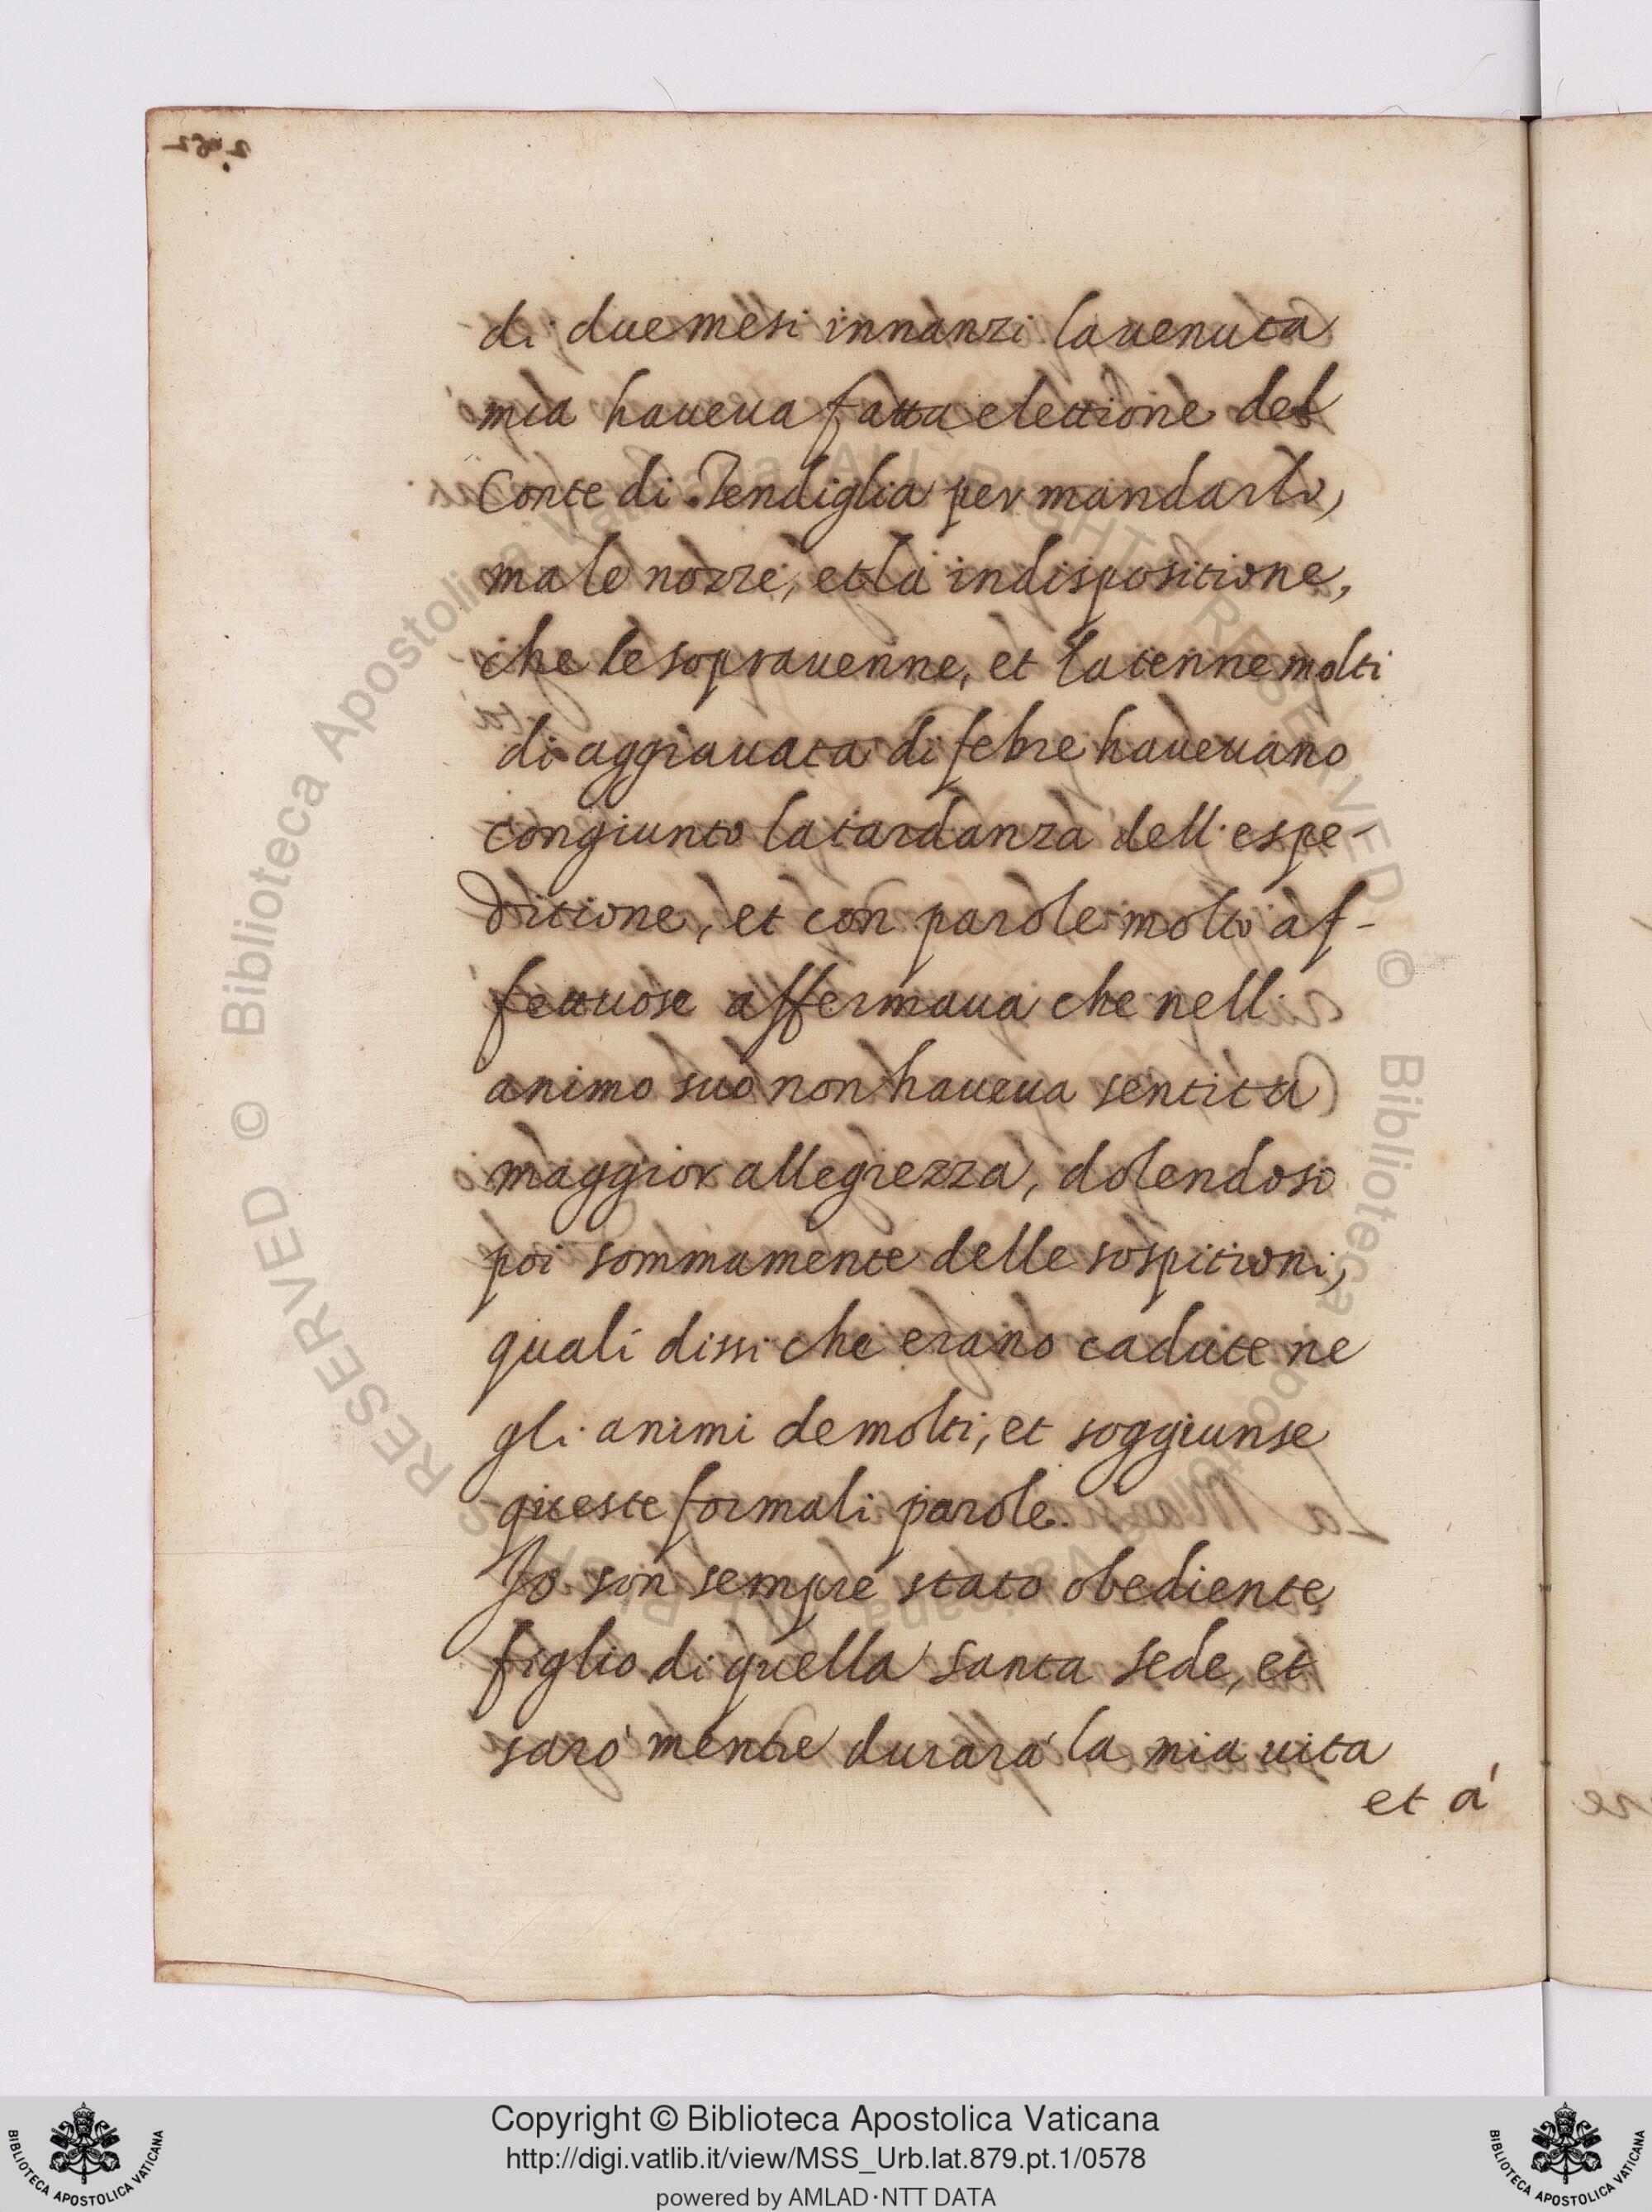 di due mesi innanzi la uenuta
mia haueua fatta elettione del
Conte di Tendiglia per mandarlo,
ma le nozze, et la indispositione,
che le soprauenne, et la tenne molti
di aggrauata di febre haueuano
congiunto la tardanza dell' espe-
ditione, et con parole molto af-
fettuose affermaua che nell'
animo suo non haueua sentita
maggior allegrezza, dolendosi
poi sommamente delle sospitioni,
quali dissi che erano cadute ne
gli animi de molti, et soggiunse
queste formali parole.
Jo son sempre stato obediente
figlio di quella santa sede, et
sarò mentre durarà la mia uita
et à
© Biblioteca Apostolica Vaticana ALL RIGHTS RESERVED © Biblioteca Apostolica Vaticana ALL RIGHTS RESERVED
Copyright © Biblioteca Apostolica Vaticana
http://digi.vatlib.it/view/MSS_Urb.lat.879.pt.1/0578
powered by AMLAD·NTT DATA
BIBLIOTECA APOSTOLICA VATICANA
BIBLIOTECA APOSTOLICA VATICANA